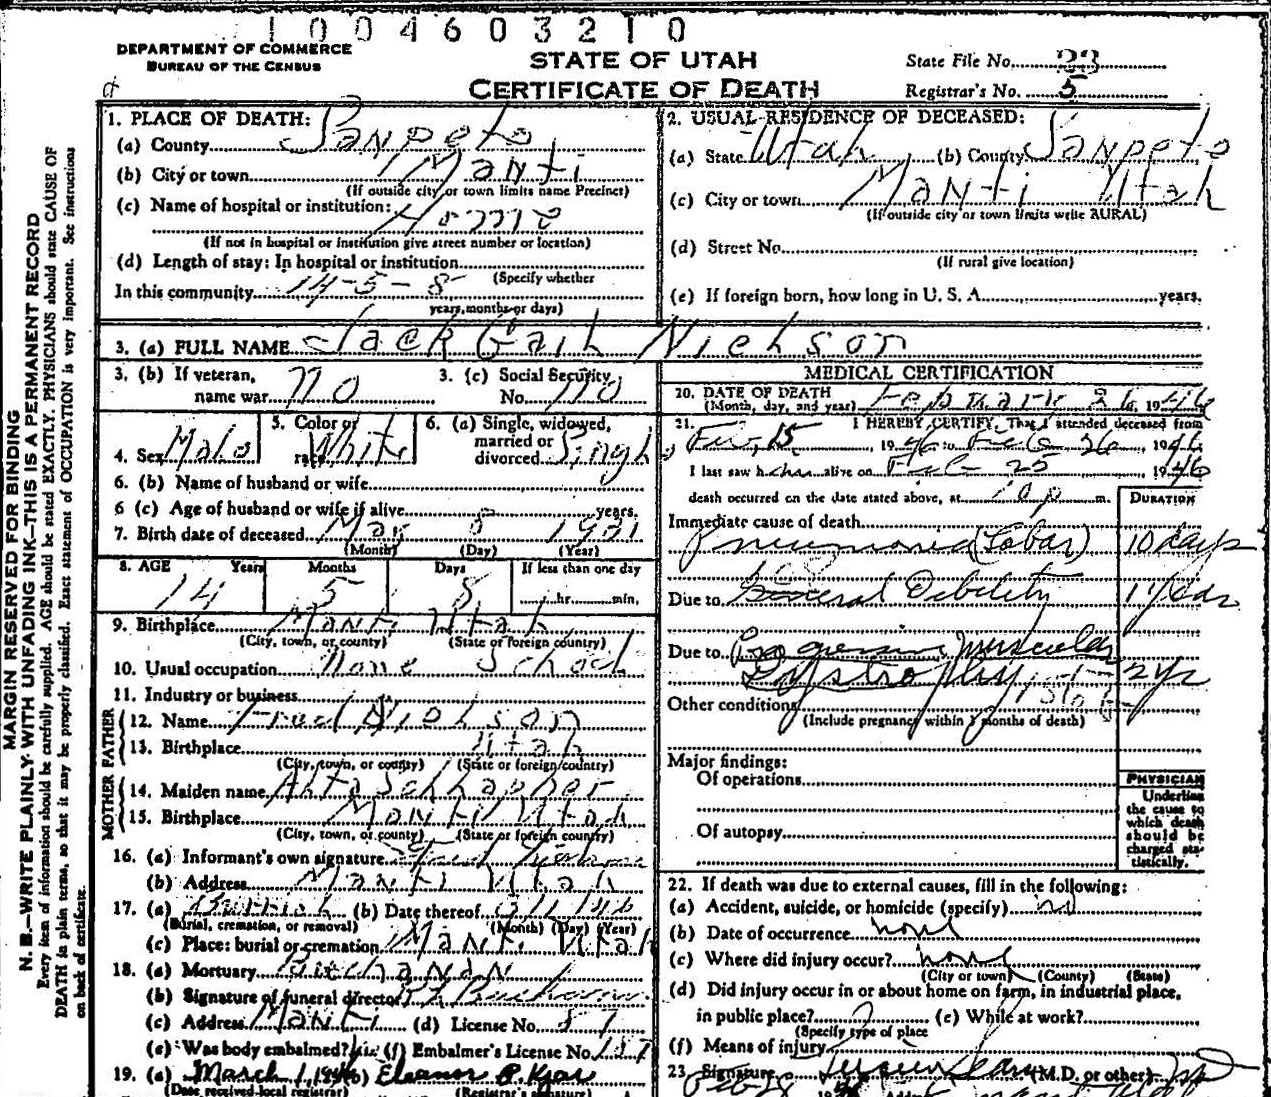 1004603210
DEPARTMENT OF COMMERCE
BUREAU OF THE CENSUS
STATE OF UTAH
CERTIFICATE OF DEATH
State File No. 23
Registrar's No. 5
MARGIN RESERVED FOR BINDING
N. B.—WRITE PLAINLY WITH UNFADING INK—THIS IS A PERMANENT RECORD
Every item of information should be carefully supplied. AGE should be stated EXACTLY. PHYSICIANS should state CAUSE OF
DEATH in plain terms, so that it may be properly classified. Exact statement of OCCUPATION is very important. See instructions
on back of certificate.
1. PLACE OF DEATH:
(a) County Sanpete
(b) City or town Manti
(If outside city or town limits name Precinct)
(c) Name of hospital or institution: Home
(If not in hospital or institution give street number or location)
(d) Length of stay: In hospital or institution
(Specify whether
In this community 14-5-8
years, months or days)
2. USUAL RESIDENCE OF DECEASED:
(a) State Utah (b) County Sanpete
(c) City or town Manti Utah
(If outside city or town limits write RURAL)
(d) Street No.
(If rural give location)
(e) If foreign born, how long in U. S. A. years.
3. (a) FULL NAME Jack Gail Nielson
3. (b) If veteran, name war no
3. (c) Social Security No. no
4. Sex Male
5. Color or race White
6. (a) Single, widowed, married or divorced Single
6. (b) Name of husband or wife
6 (c) Age of husband or wife if alive years.
7. Birth date of deceased 1931
(Month) (Day) (Year)
8. AGE Years Months Days If less than one day
14 5 8 hr. min.
9. Birthplace Manti Utah
(City, town, or county) (State or foreign country)
10. Usual occupation None School
11. Industry or business
FATHER
12. Name Fred Nielson
13. Birthplace Utah
(City, town, or county) (State or foreign country)
MOTHER
14. Maiden name Alta
15. Birthplace Manti Utah
(City, town, or county) (State or foreign country)
16. (a) Informant's own signature
(b) Address Manti Utah
17. (a) Burial (b) Date thereof
(Burial, cremation, or removal) (Month) (Day) (Year)
(c) Place: burial or cremation Manti Utah
18. (a) Mortuary Buchanan
(b) Signature of funeral director Buchanan
(c) Address Manti (d) License No. 57
(e) Was body embalmed? (f) Embalmer's License No.
19. (a) March 1, 1946 (b) Eleanor P. Kjar
(Date received local registrar) (Registrar's signature)
MEDICAL CERTIFICATION
20. DATE OF DEATH
(Month, day, and year) February 26, 1946
21. I HEREBY CERTIFY, That I attended deceased from
Feb 15 1946 to Feb 26 1946
I last saw him alive on Feb 25 1946
death occurred on the date stated above, at m.
DURATION
Immediate cause of death
Pneumonia (Lobar) 10 days
Due to General Debility 1 year
Due to Progressive Muscular
Dystrophy 2 yr
Other conditions
(Include pregnancy within 3 months of death)
Major findings:
Of operations
Of autopsy
PHYSICIAN
Underline
the cause to
which death
should be
charged sta-
tistically.
22. If death was due to external causes, fill in the following:
(a) Accident, suicide, or homicide (specify) no
(b) Date of occurrence none
(c) Where did injury occur? none
(City or town) (County) (State)
(d) Did injury occur in or about home on farm, in industrial place,
in public place? (e) While at work?
(Specify type of place
(f) Means of injury
23. Signature (M.D. or other) MD